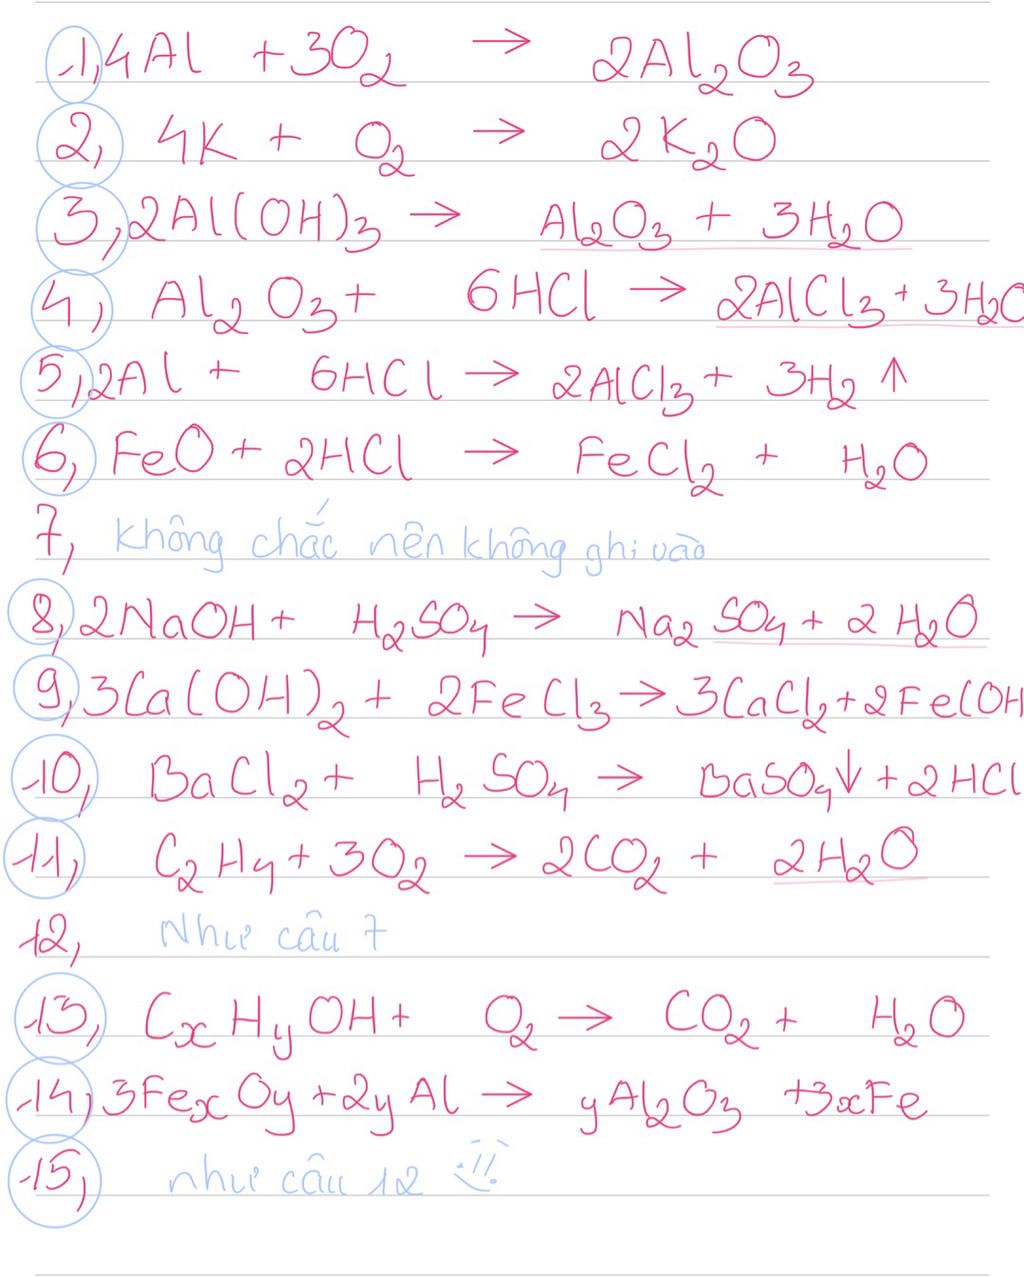 1, 4Al + 3O₂ → 2Al₂O₃
2, 4K + O₂ → 2K₂O
3, 2Al(OH)₃ → Al₂O₃ + 3H₂O
4, Al₂O₃ + 6HCl → 2AlCl₃ + 3H₂O
5, 2Al + 6HCl → 2AlCl₃ + 3H₂ ↑
6, FeO + 2HCl → FeCl₂ + H₂O
7, Không chắc nên không ghi vào
8, 2NaOH + H₂SO₄ → Na₂SO₄ + 2H₂O
9, 3Ca(OH)₂ + 2FeCl₃ → 3CaCl₂ + 2Fe(OH
10, BaCl₂ + H₂SO₄ → BaSO₄↓ + 2HCl
11, C₂H₄ + 3O₂ → 2CO₂ + 2H₂O
12, Như câu 7
13, CxHyOH + O₂ → CO₂ + H₂O
14, 3FexOy + 2yAl → yAl₂O₃ + 3xFe
15, như câu 12